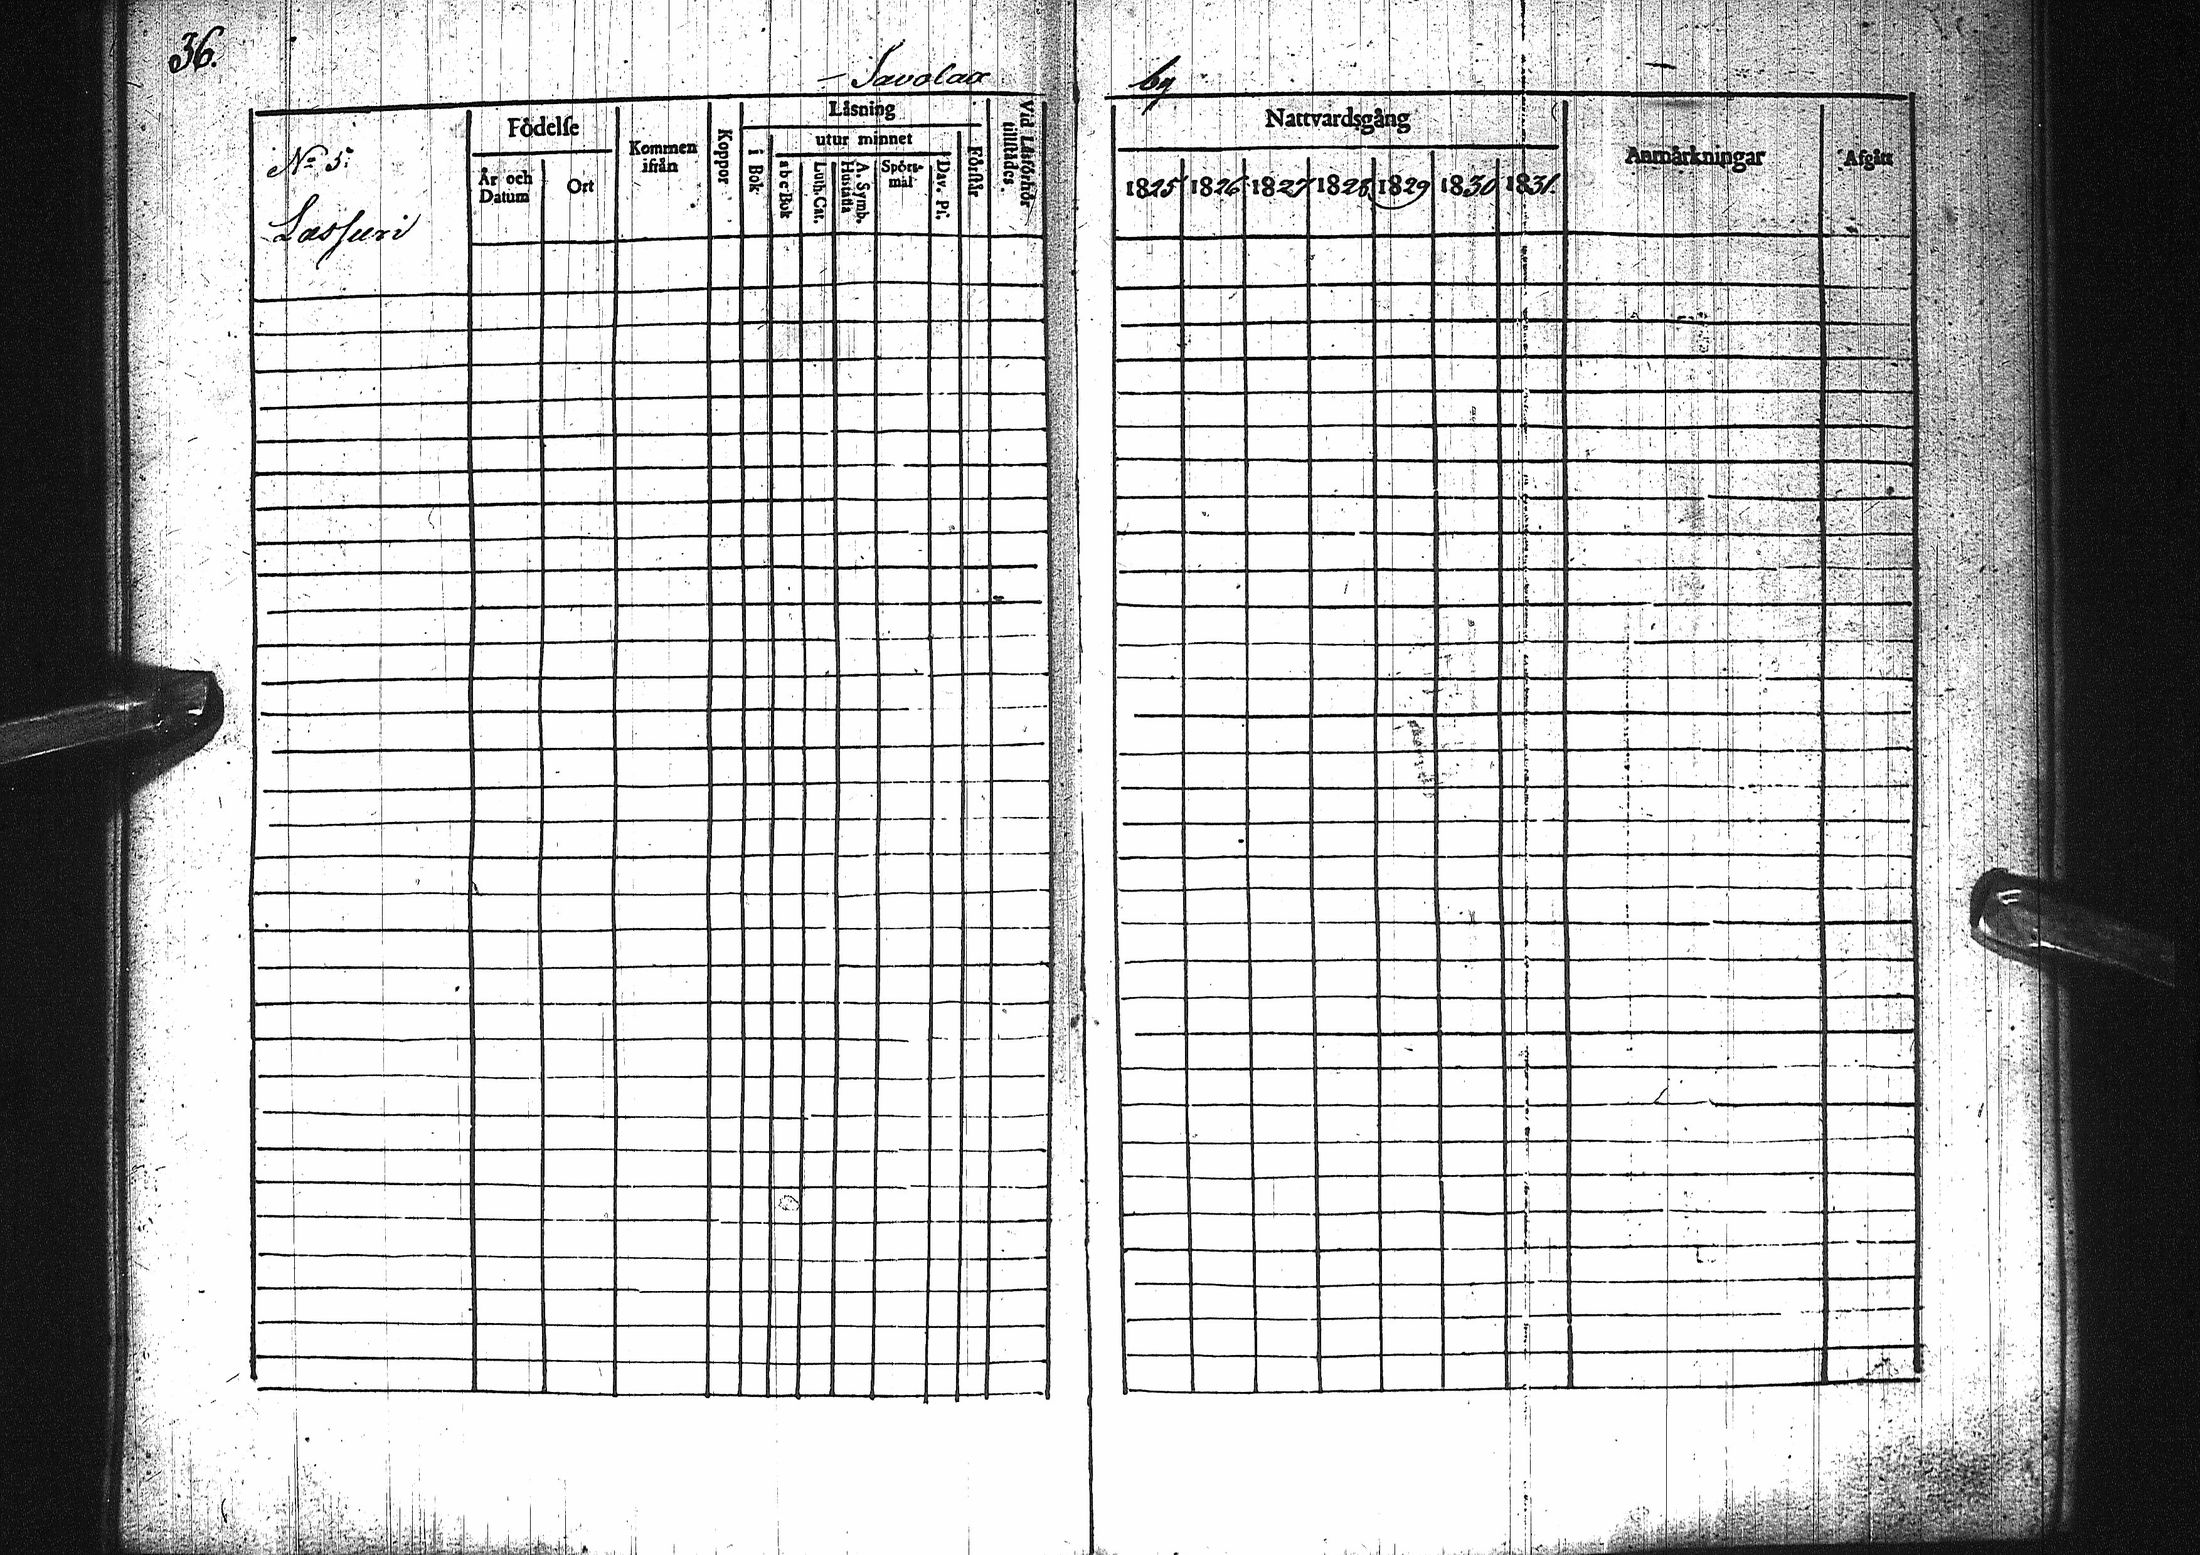 36.
Savolax by
No 5:
Lassuri
Födelse
År och Datum
Ort
Kommen ifrån
Koppor
Läsning
utur minnet
i Bok
abcBok
Luth. Cat.
A. Symb. Hustafla
Spörsmål
Dav. Ps.
Förstår
Vid Läsförhör tillstädes.
Nattvardsgång
1825 1826 1827 1828 1829 1830 1831.
Anmärkningar
Afgått